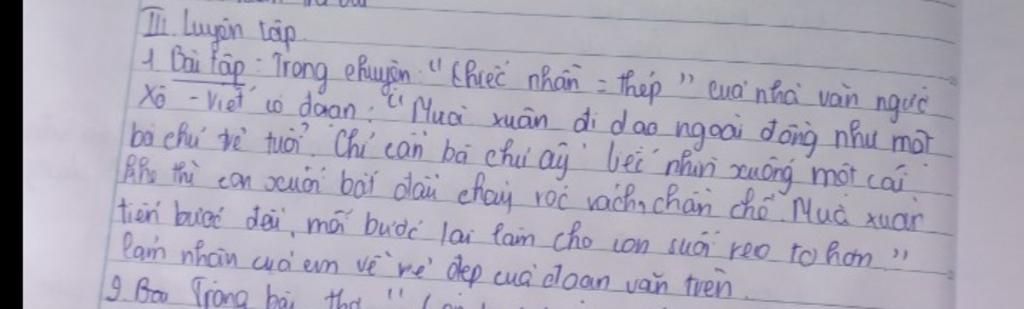 III. Luyện tập
1 Bài tập: Trong chuyện "Chiếc nhẫn = thép" của nhà văn người
Xô - Viết có đoạn: "Mùa xuân đi dạo ngoài đồng như một
bà chủ trẻ tuổi. Chỉ cần bà chủ ấy liếc nhìn xuống một cái
khe thì con suối bắt đầu chảy róc rách, chân chê. Mùa xuân
tiến bước dài, mỗi bước lại làm cho con suối reo to hơn."
Cảm nhận của em về vẻ đẹp của đoạn văn trên.
Trong bài thơ "